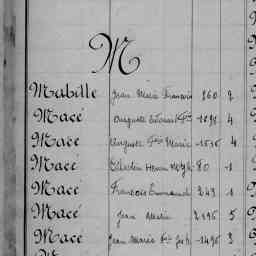 M
Mabille Jean Marie François 260 2
Macé Auguste Edouard 1898 4
Macé Auguste Marie 1536 4
Macé Célestin Henri 80 1
Macé François Emmanuel 243 1
Macé Jean Martin 2196 5
Macé Jean Marie 1496 3